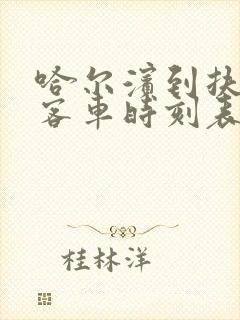 哈尔滨到扶
客车时刻表
桂林洋